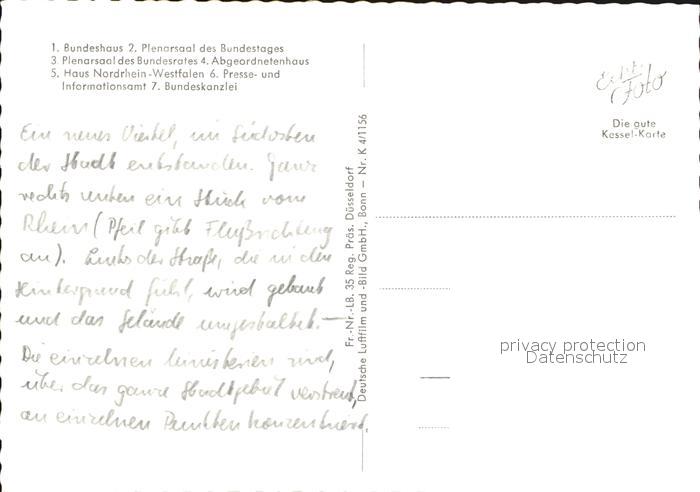 1. Bundeshaus 2. Plenarsaal des Bundestages
3 Plenarsaal des Bundesrates 4. Abgeordnetenhaus
5. Haus Nordrhein-Westfalen 6. Presse- und
Informationsamt 7. Bundeskanzlei
Ein neues Viertel, im Südosten
der Stadt entstanden. Ganz
rechts unten ein Stück vom
Rhein (Pfeil gibt Flußrichtung
an). Links der Straße, die in den
Hintergrund führt, wird gebaut
und das Gelände umgestaltet. —
Die einzelnen Ministerien sind,
über das ganze Stadtgebiet verstreut,
an einzelnen Punkten konzentriert.
Fr.-Nr.-LB. 35 Reg. Präs. Düsseldorf
Deutsche Luftfilm und -Bild GmbH., Bonn — Nr. K 4/1156
Echt
Foto
Die gute
Kessel-Karte
privacy protection
Datenschutz